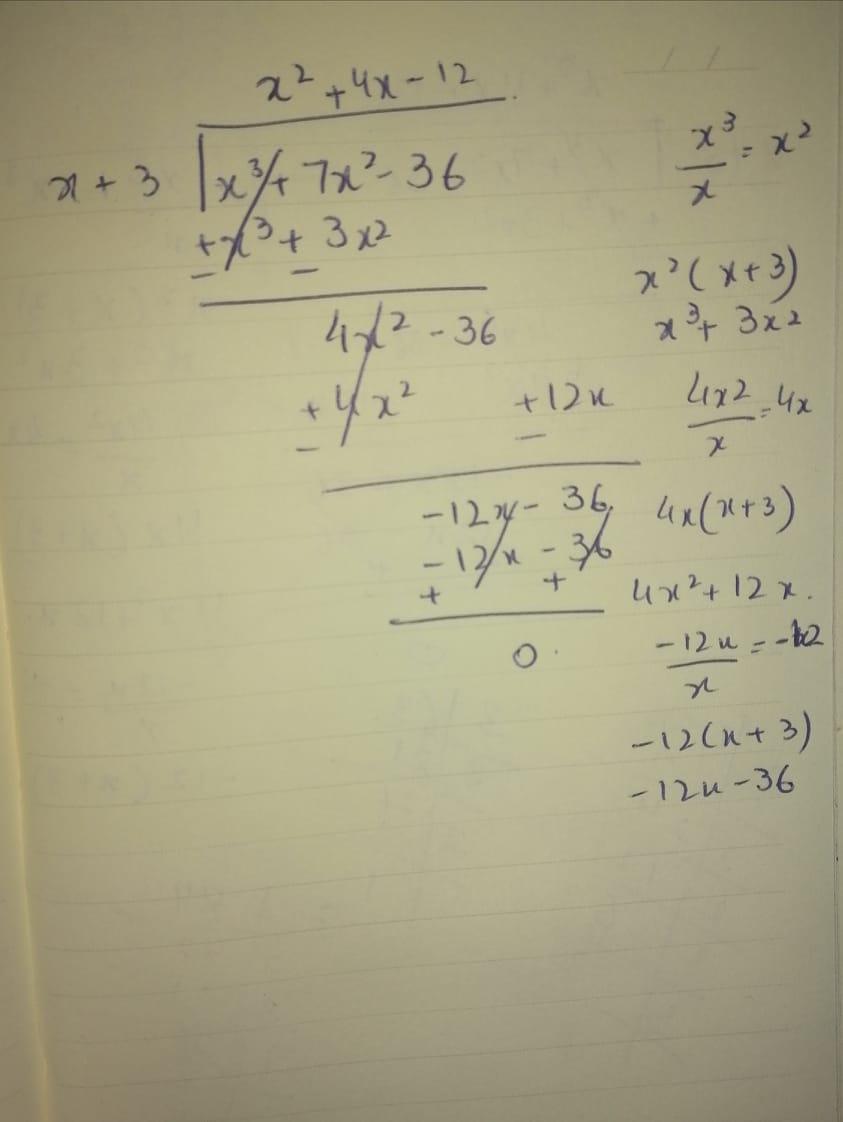 x² + 4x - 12
x + 3 | x³ + 7x² - 36
+ x³ + 3x²
- -
4x² - 36
+ 4x² + 12x
- -
-12x - 36
-12x - 36
+ +
0.
x³/x = x²
x²(x+3)
x³ + 3x²
4x²/x = 4x
4x(x+3)
4x² + 12x.
-12x/x = -12
-12(x+3)
-12x - 36